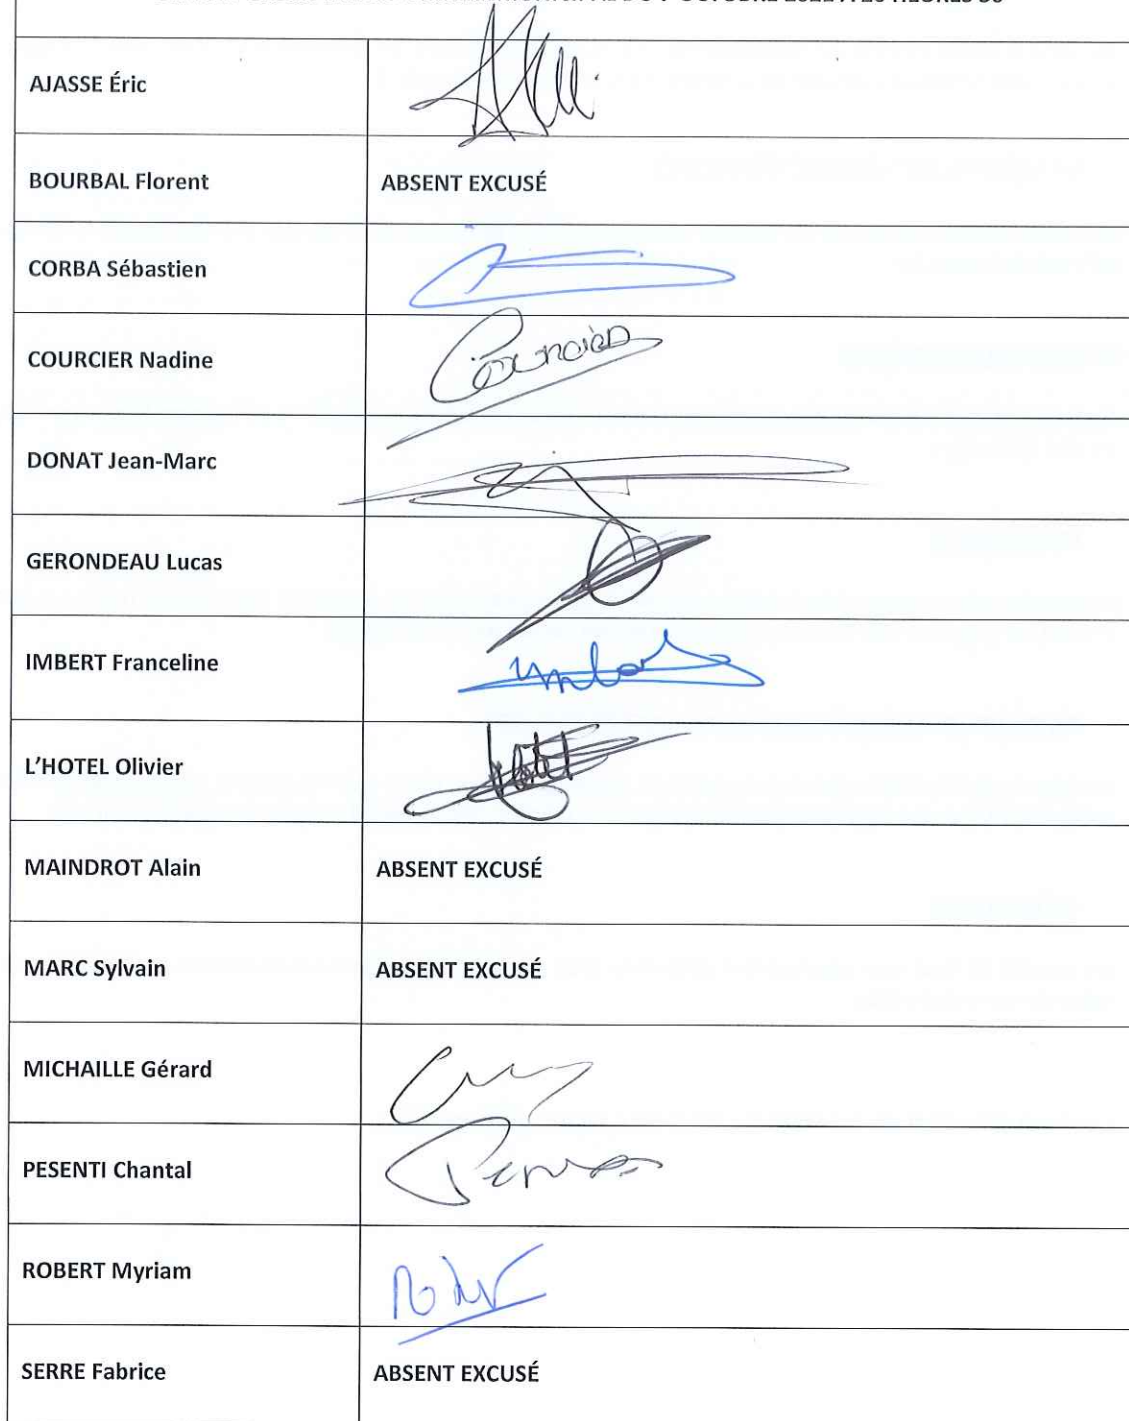 AJASSE Éric
BOURBAL Florent ABSENT EXCUSÉ
CORBA Sébastien
COURCIER Nadine
DONAT Jean-Marc
GERONDEAU Lucas
IMBERT Franceline
L'HOTEL Olivier
MAINDROT Alain ABSENT EXCUSÉ
MARC Sylvain ABSENT EXCUSÉ
MICHAILLE Gérard
PESENTI Chantal
ROBERT Myriam
SERRE Fabrice ABSENT EXCUSÉ